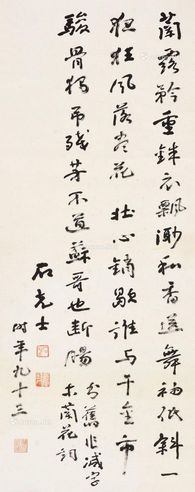 蘭露矜重銖衣飄渺和香送舞袖低斜一
狂風落盡花 壯心銷歇誰与千金市
駿骨獨吊殘芳不道蘇哥也斷腸
舊作減字
木蘭花詞
石克士
時年九十三